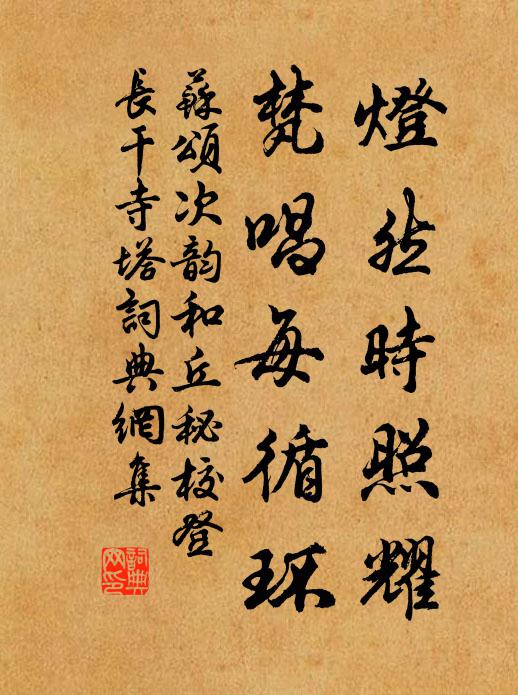 燈然時照耀
梵唱每循环
蘇頌次韵和丘秘校登
長干寺塔詞典網集
詞典
网印